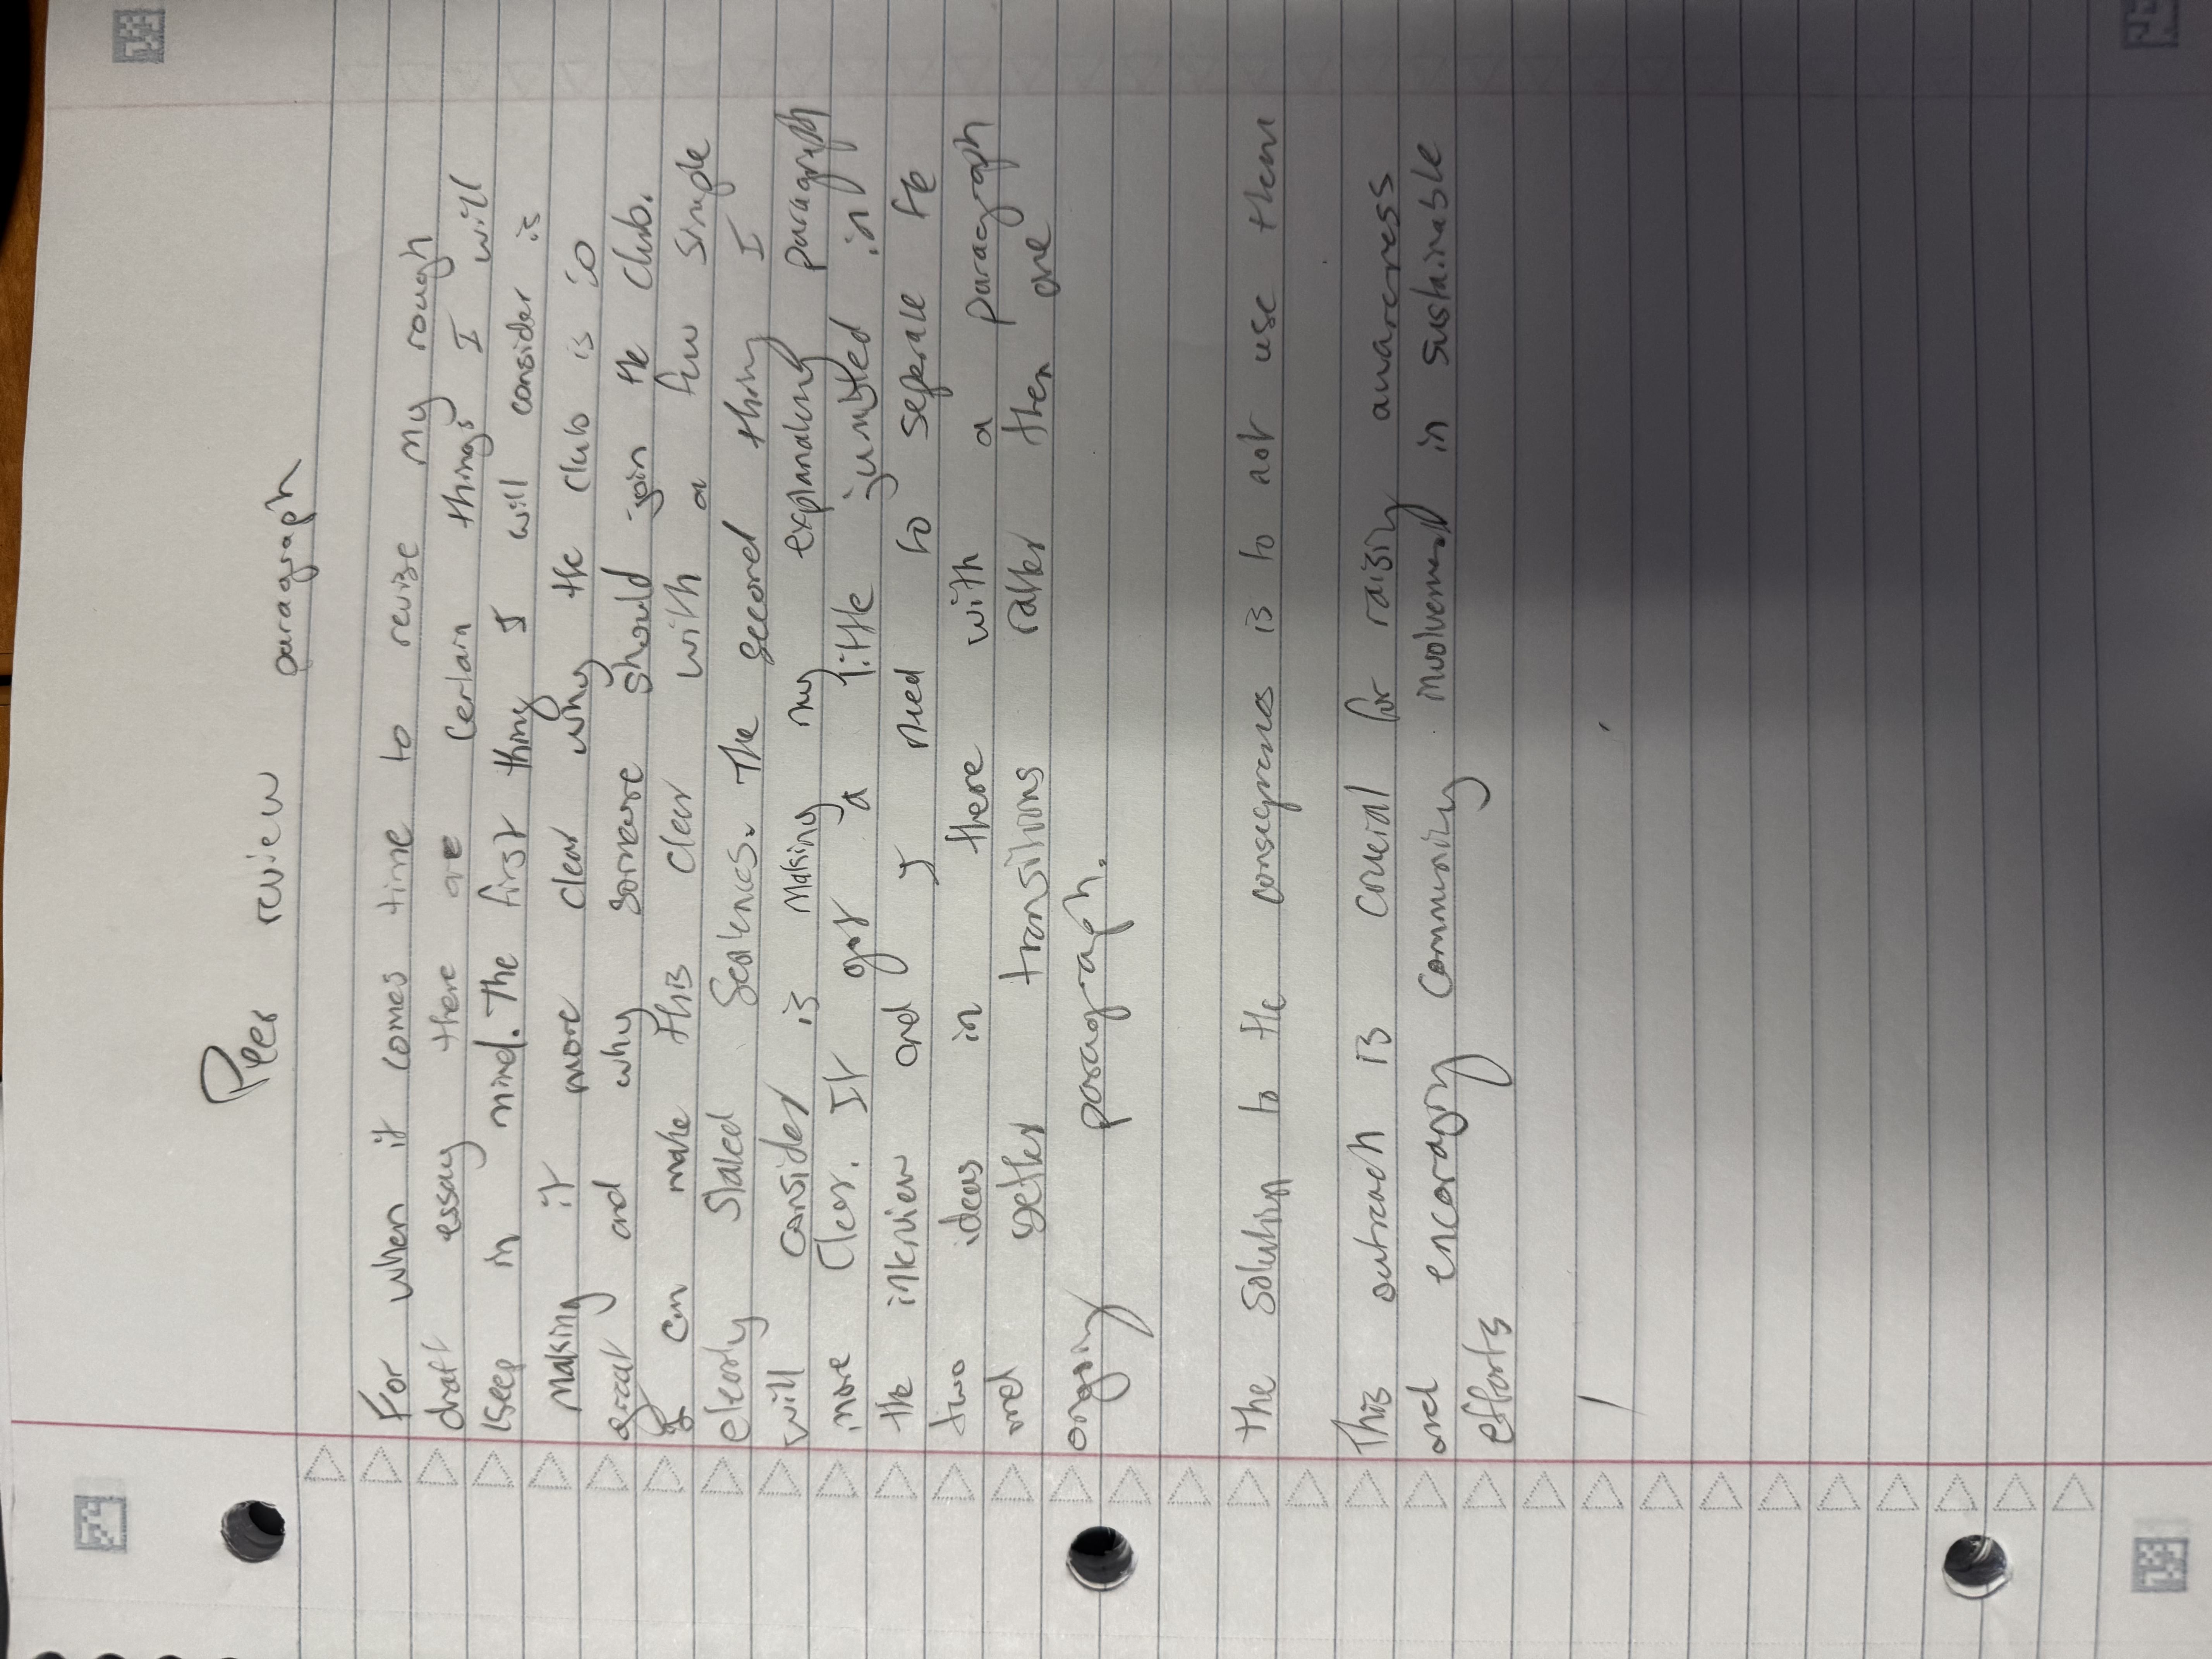 Peer review paragraph
For when it comes time to revise my rough
draft essay there are certain things I will
keep in mind. The first thing I will consider is
Making it more clear why the club is so
great and why someone should join the club.
I can make this clear with a few simple
clearly stated sentences. The second thing I
will consider is making my explanaling paragraph
more clear. It got a little jumbled in
the interview and I need to separate the
two ideas in there with a paragraph
and better transitions rather then one
ongoing paragraph.
the solution to the consequences is to not use them
This outreach is crucial for raising awareness
and encoraging community involvement in sustainable
efforts